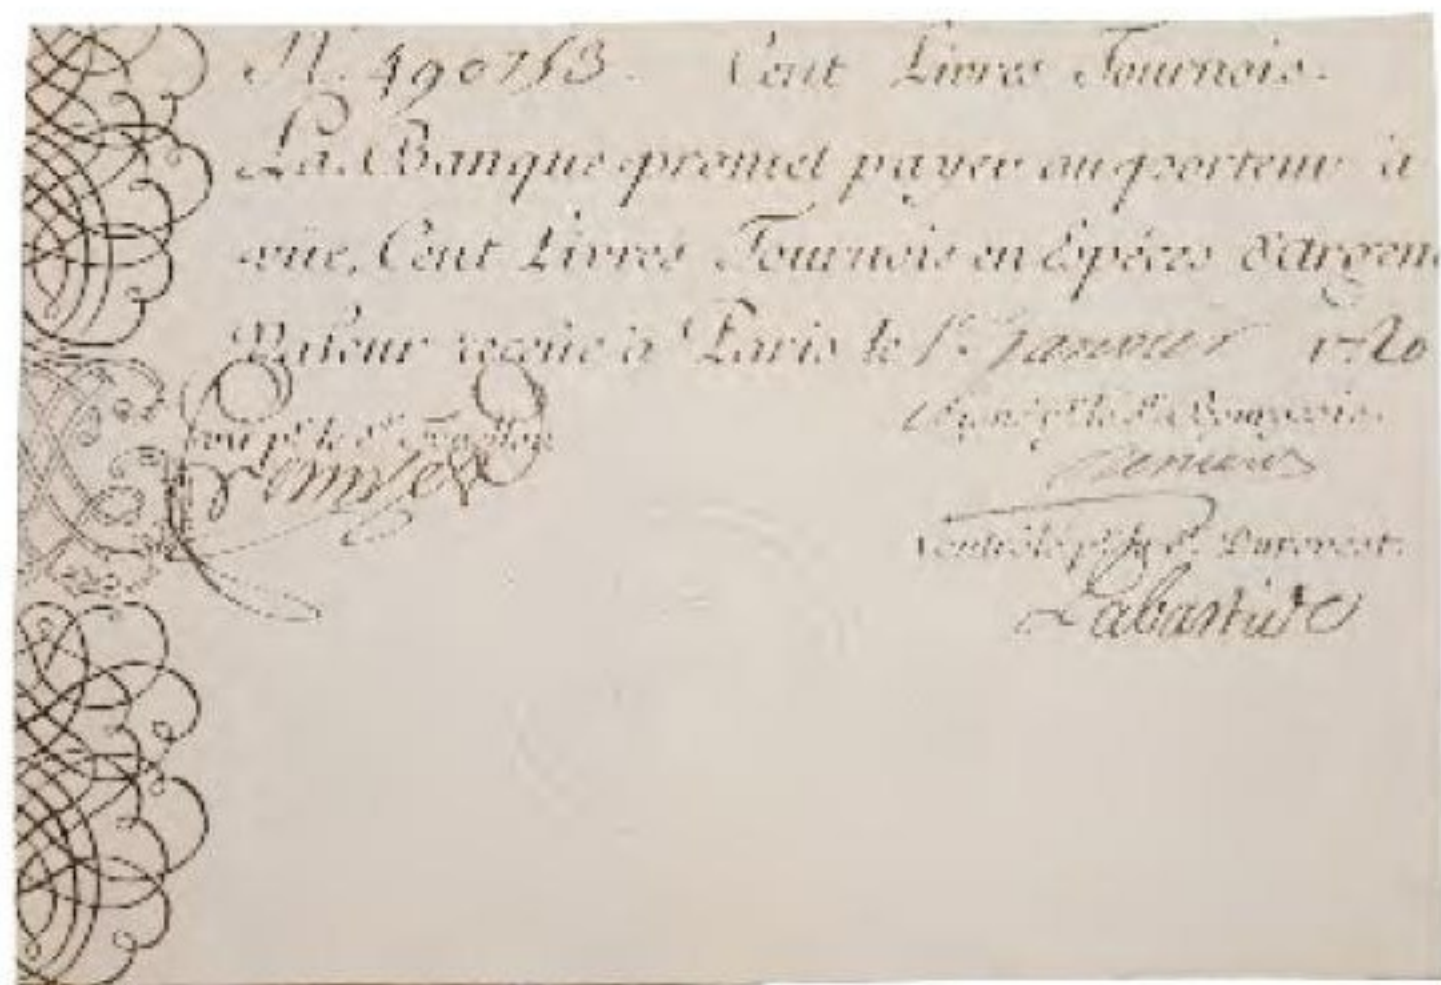 N.° 490753. Cent Livres Tournois.
La Banque promet payer au porteur à
vüe, Cent Livres Tournois en Espéces d'Argent
Valeur reçeüe à Paris le 1.er Janvier 1720
Vu p.r le S.r Fenellon
Signé p.r le S.r Bourgeois.
Controllé p.r le S.r Durevest.
Labastide